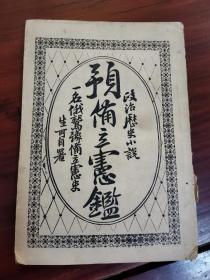 政治歷史小說
預備立憲鑑
一名俄羅斯豫備立憲史
生可自署